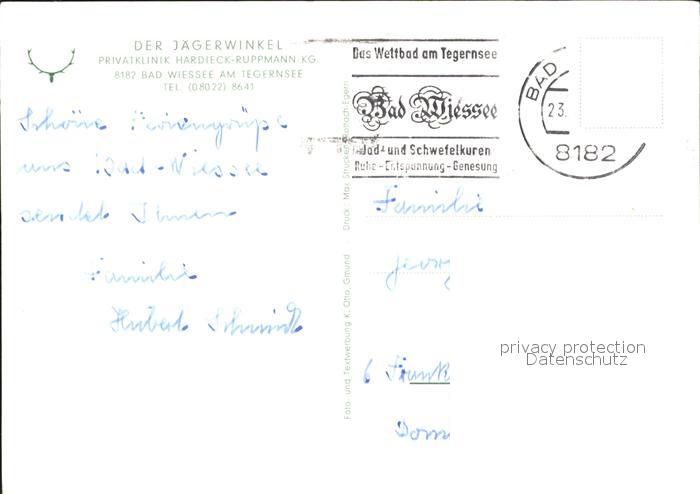 DER JÄGERWINKEL
PRIVATKLINIK HARDIECK-RUPPMANN KG.
8182 BAD WIESSEE AM TEGERNSEE
TEL. (08022) 8641
Schöne Feriengrüße
aus Bad-Wiessee
sendet Ihnen
Familie
Hubert Schmidt
Das Weltbad am Tegernsee
Bad Wiessee
Jod- und Schwefelkuren
Ruhe - Entspannung - Genesung
BAD
23.
8182
Foto und Textwerbung K. Otto, Gmund · Druck Max
Familie
Georg
6 Frank
Dom
privacy protection
Datenschutz